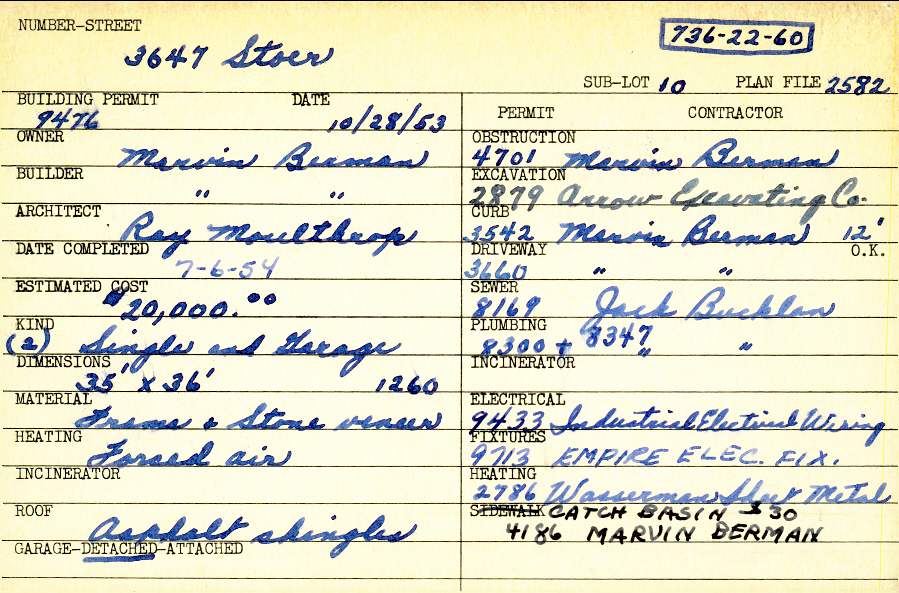 NUMBER-STREET
3647 Stoer
736-22-60
SUB-LOT 10 PLAN FILE 2582
BUILDING PERMIT DATE
9476 10/28/53
OWNER
Marvin Berman
BUILDER
" "
ARCHITECT
Ray Moulthrop
DATE COMPLETED
7-6-54
ESTIMATED COST
$20,000.00
KIND
(2) Single and Garage
DIMENSIONS
35' X 36' 1260
MATERIAL
Frame & Stone veneer
HEATING
Forsed air
INCINERATOR
ROOF
Asphalt shingles
GARAGE-DETACHED-ATTACHED
PERMIT CONTRACTOR
OBSTRUCTION
4701 Marvin Berman
EXCAVATION
2879 Arrow Excavating Co.
CURB
3542 Marvin Berman 12'
DRIVEWAY O.K.
3660 " "
SEWER
8169 Jack Bucklan
PLUMBING
8300 + 8347 " "
INCINERATOR
ELECTRICAL
9433 Industrial Electrical Wiring
FIXTURES
9713 EMPIRE ELEC. FIX.
HEATING
2786 Wasserman Sheet Metal
SIDEWALK CATCH BASIN $30
4186 MARVIN BERMAN